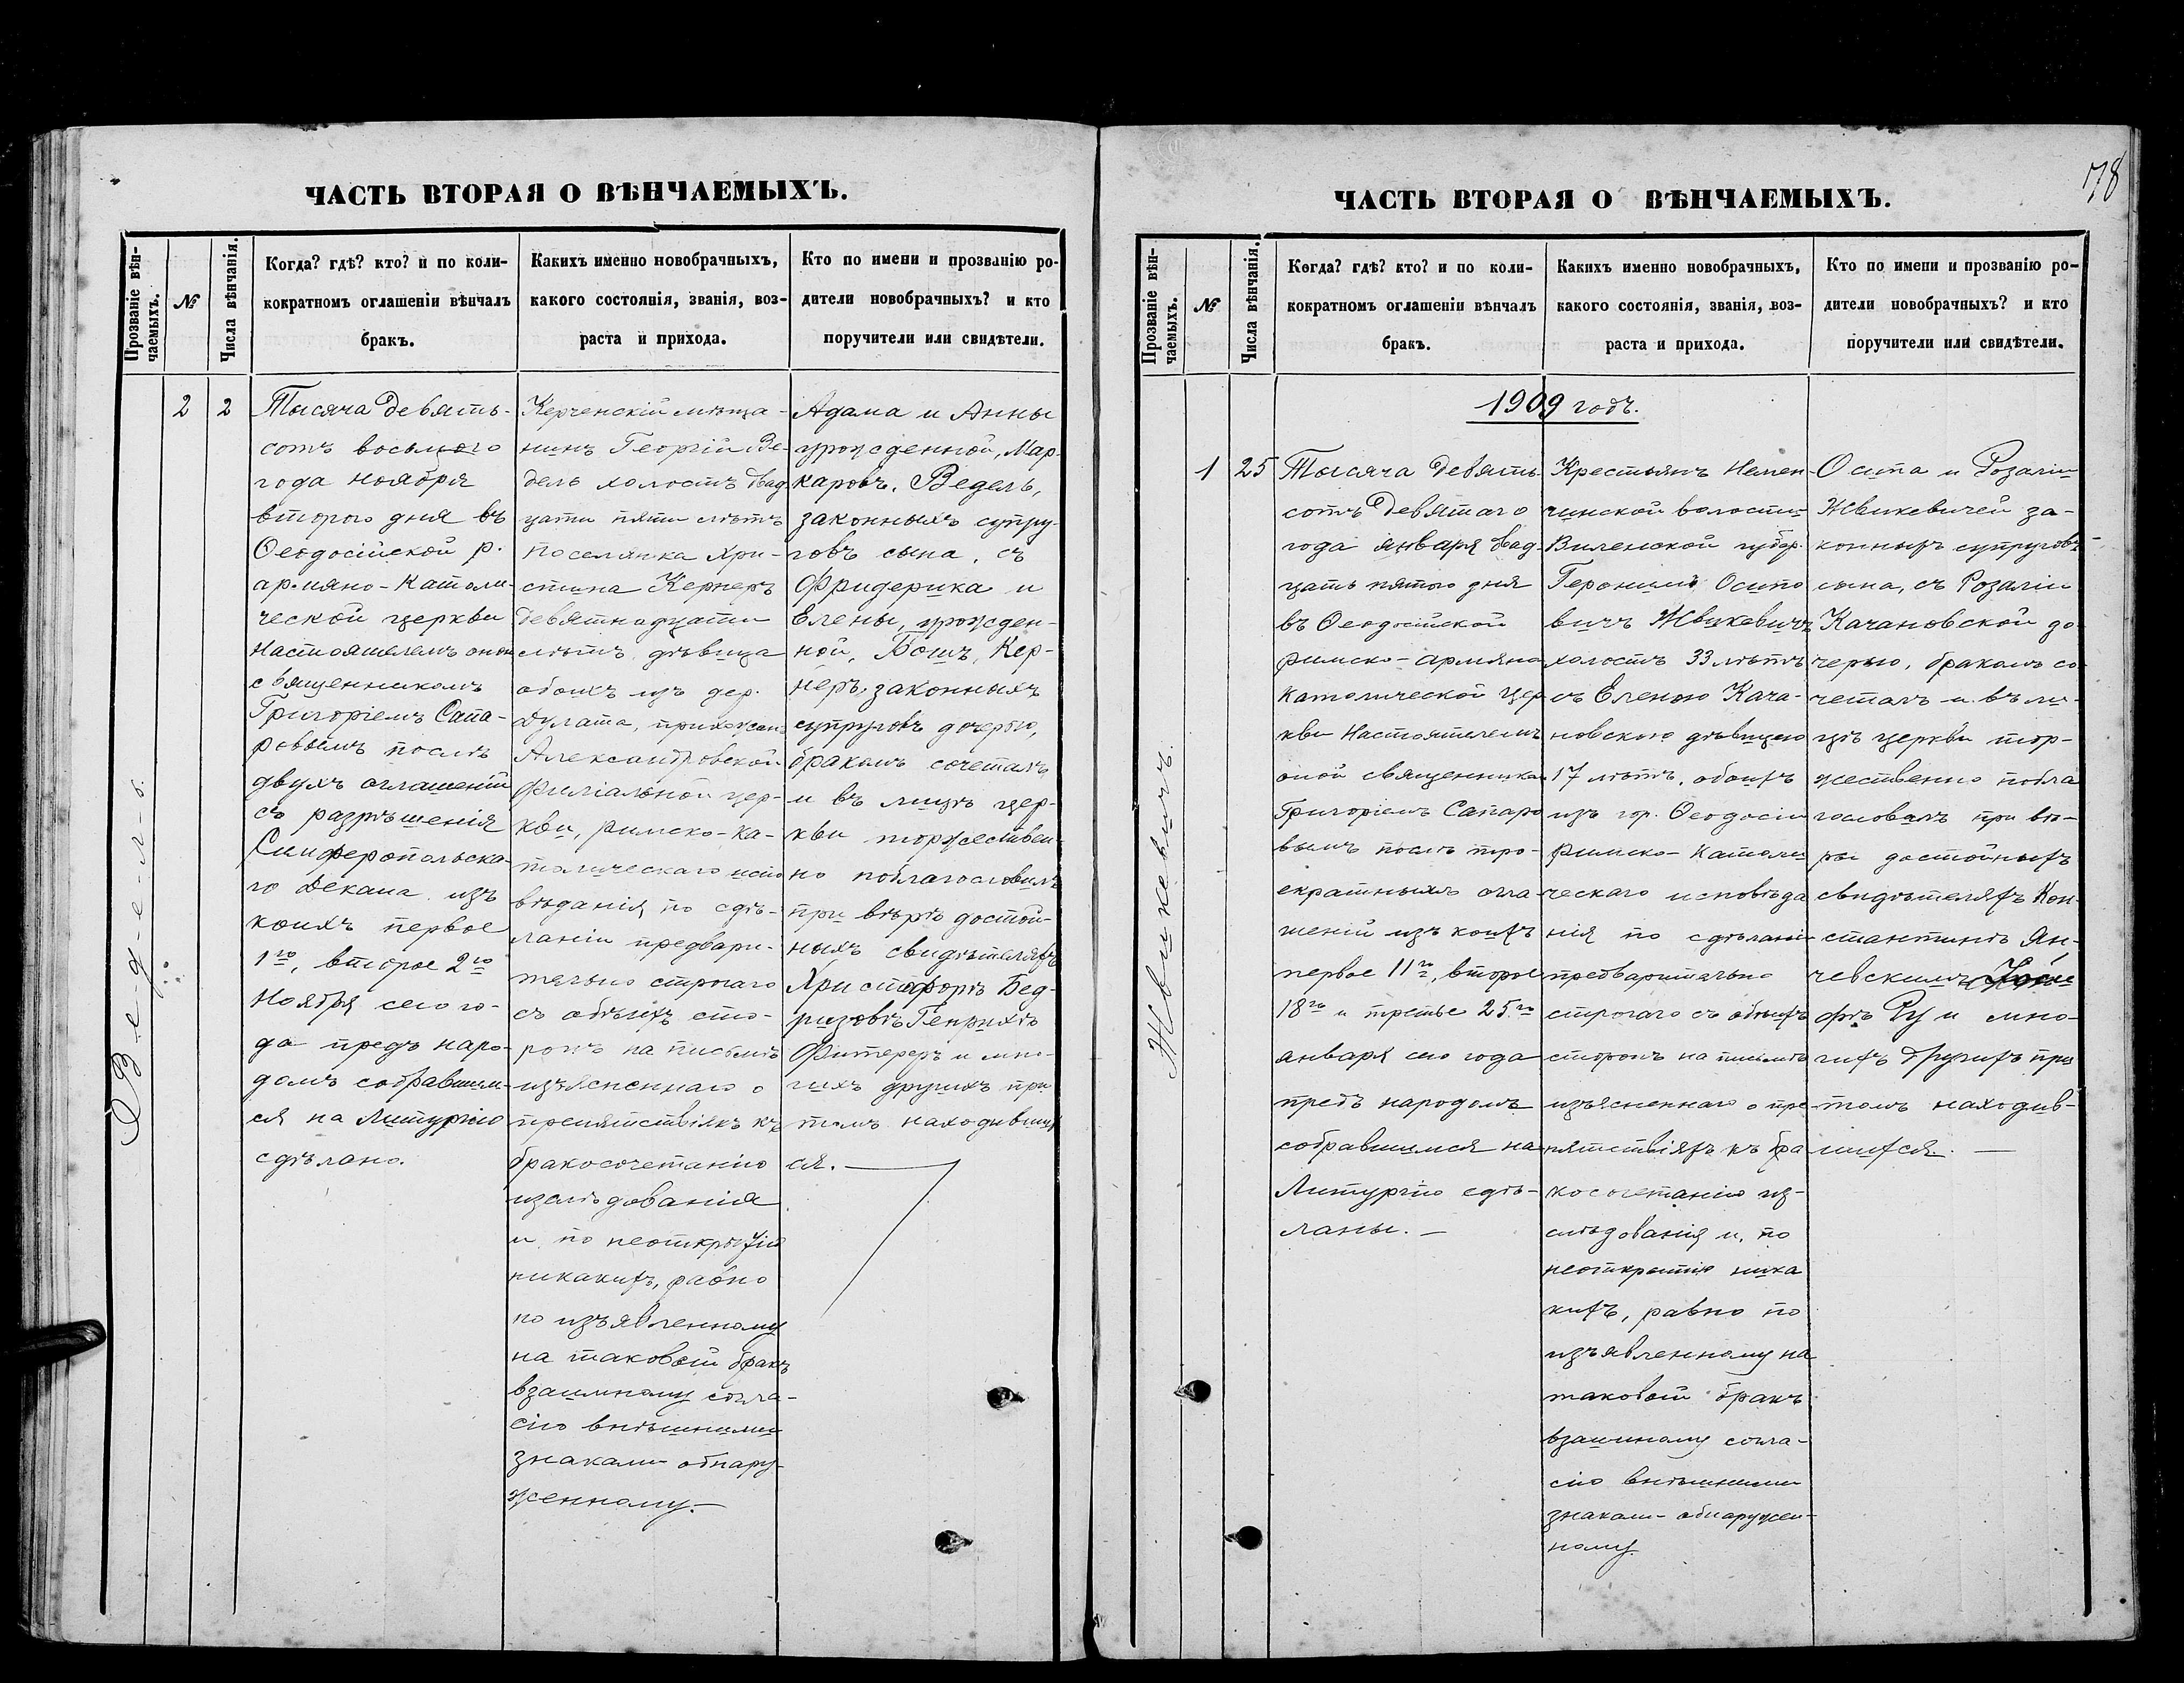 ЧАСТЬ ВТОРАЯ О ВѢНЧАЕМЫХЪ.
Прозваніе вѣн-
чаемыхъ.
№
Числа вѣнчанія.
Когда? гдѣ? кто? и по коли-
кократномъ оглашеніи вѣнчалъ
бракъ.
Какихъ именно новобрачныхъ,
какого состоянія, званія, воз-
раста и прихода.
Кто по имени и прозванію ро-
дители новобрачныхъ? и кто
поручители или свидѣтели.
В-е-д-е-л-ь.
2
2
Тысяча девять-
сотъ восьмого
года ноября
второго дня въ
Ѳеодосійской р.
армяно-католи-
ческой церкви
Настоятелемъ оной
священникомъ
Григоріемъ Сапа-
ровымъ послѣ
двухъ оглашеній
съ разрѣшенія
Симферопольска-
го Декана изъ
коихъ первое
1го, второе 2го
Ноября сего го-
да предъ наро-
домъ собравшим-
ся на Литургію
сдѣлано.
Керченскій мѣща-
нинъ Георгій Ве-
дель холостъ двад
цати пяти лѣтъ
поселянка Хри-
стина Кернеръ
девятнадцати
лѣтъ дѣвица
обоихъ изъ дер.
прихожан
Александровской
филіальной цер-
кви, римско-ка-
толическаго испо
вѣданія, по сдѣ-
ланіи предвари-
тельно строгаго
съ обѣихъ сто-
ронъ на письмѣ
изъясненнаго о
препятствіяхъ къ
бракосочетанію
изслѣдованія
и по неоткрытіи
никакихъ, равно
по изъявленному
на таковой бракъ
взаимному согла-
сію внѣшними
знаками обнару-
женному.—
Адама и Анны
урожденной, Мар-
каровъ, Ведель,
законныхъ супру-
говъ сына, съ
Фридерика и
Елены, урожден-
ной, Бошъ, Кер-
неръ, законныхъ
супруговъ дочерью,
бракомъ сочеталъ
и въ лицѣ цер-
кви торжествен-
но поблагословилъ
при вѣрѣ достой-
ныхъ свидѣтеляхъ
Христофорѣ Бед-
ризовѣ Генрихѣ
Фитереръ и мно-
гихъ другихъ при
томъ находивших
ся.—
ЧАСТЬ ВТОРАЯ О ВѢНЧАЕМЫХЪ.
178
Прозваніе вѣн-
чаемыхъ.
№
Числа вѣнчанія.
Когда? гдѣ? кто? и по коли-
кократномъ оглашеніи вѣнчалъ
бракъ.
Какихъ именно новобрачныхъ,
какого состоянія, званія, воз-
раста и прихода.
Кто по имени и прозванію ро-
дители новобрачныхъ? и кто
поручители или свидѣтели.
1909 годъ.
Жвикевичъ.
1
25
Тысяча девять
сотъ девятаго
года января двад-
цать пятого дня
въ Ѳеодосійской
римско-армяно
католической цер
кви Настоятелемъ
оной священникомъ
Григоріемъ Сапаро
вымъ послѣ тро-
екратныхъ огла-
шеній изъ коихъ
первое 11го, второе
18го и третье 25го
января сего года
предъ народомъ
собравшимся на
Литургію сдѣ-
ланы.—
Крестьянъ Немен
чинской волости
Виленской губер.
Геронимъ Осипо
вичъ Жвикевичъ
холостъ 33 лѣтъ
съ Еленою Кача-
новскою дѣвицею
17 лѣтъ, обоихъ
изъ гор. Ѳеодосіи
Римско-Католи
ческаго исповѣда
нія по сдѣланіи
предварительно
строгаго съ обѣихъ
сторонъ на письмѣ
изъясненнаго о пре
пятствіяхъ къ бра
косочетанію из-
слѣдованія и, по
неоткрытіи ника
кихъ, равно по
изъявленному на
таковой бракъ
взаимному согла-
сію внѣшними
знаками обнаружен-
ному.
Осипа и Розаліи
Жвикевичей за-
конныхъ супруговъ
сына, съ Розаліи
Качановской до-
черью, бракомъ со-
четалъ и въ ли-
цѣ церкви тор-
жественно побла
гословилъ при вѣ-
ры достойныхъ
свидѣтеляхъ Кон-
стантинѣ Ян-
чевскимъ, Іоси-
фѣ Ру и мно-
гихъ другихъ при
томъ находив-
шихся.—